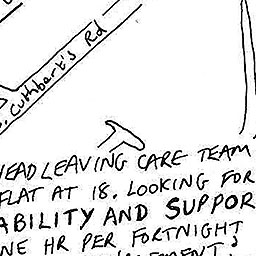 . Cuthbert's Rd
HEAD LEAVING CARE TEAM
FLAT AT 18. LOOKING FOR
ABILITY AND SUPPOR
NE HR PER FORTNIGHT